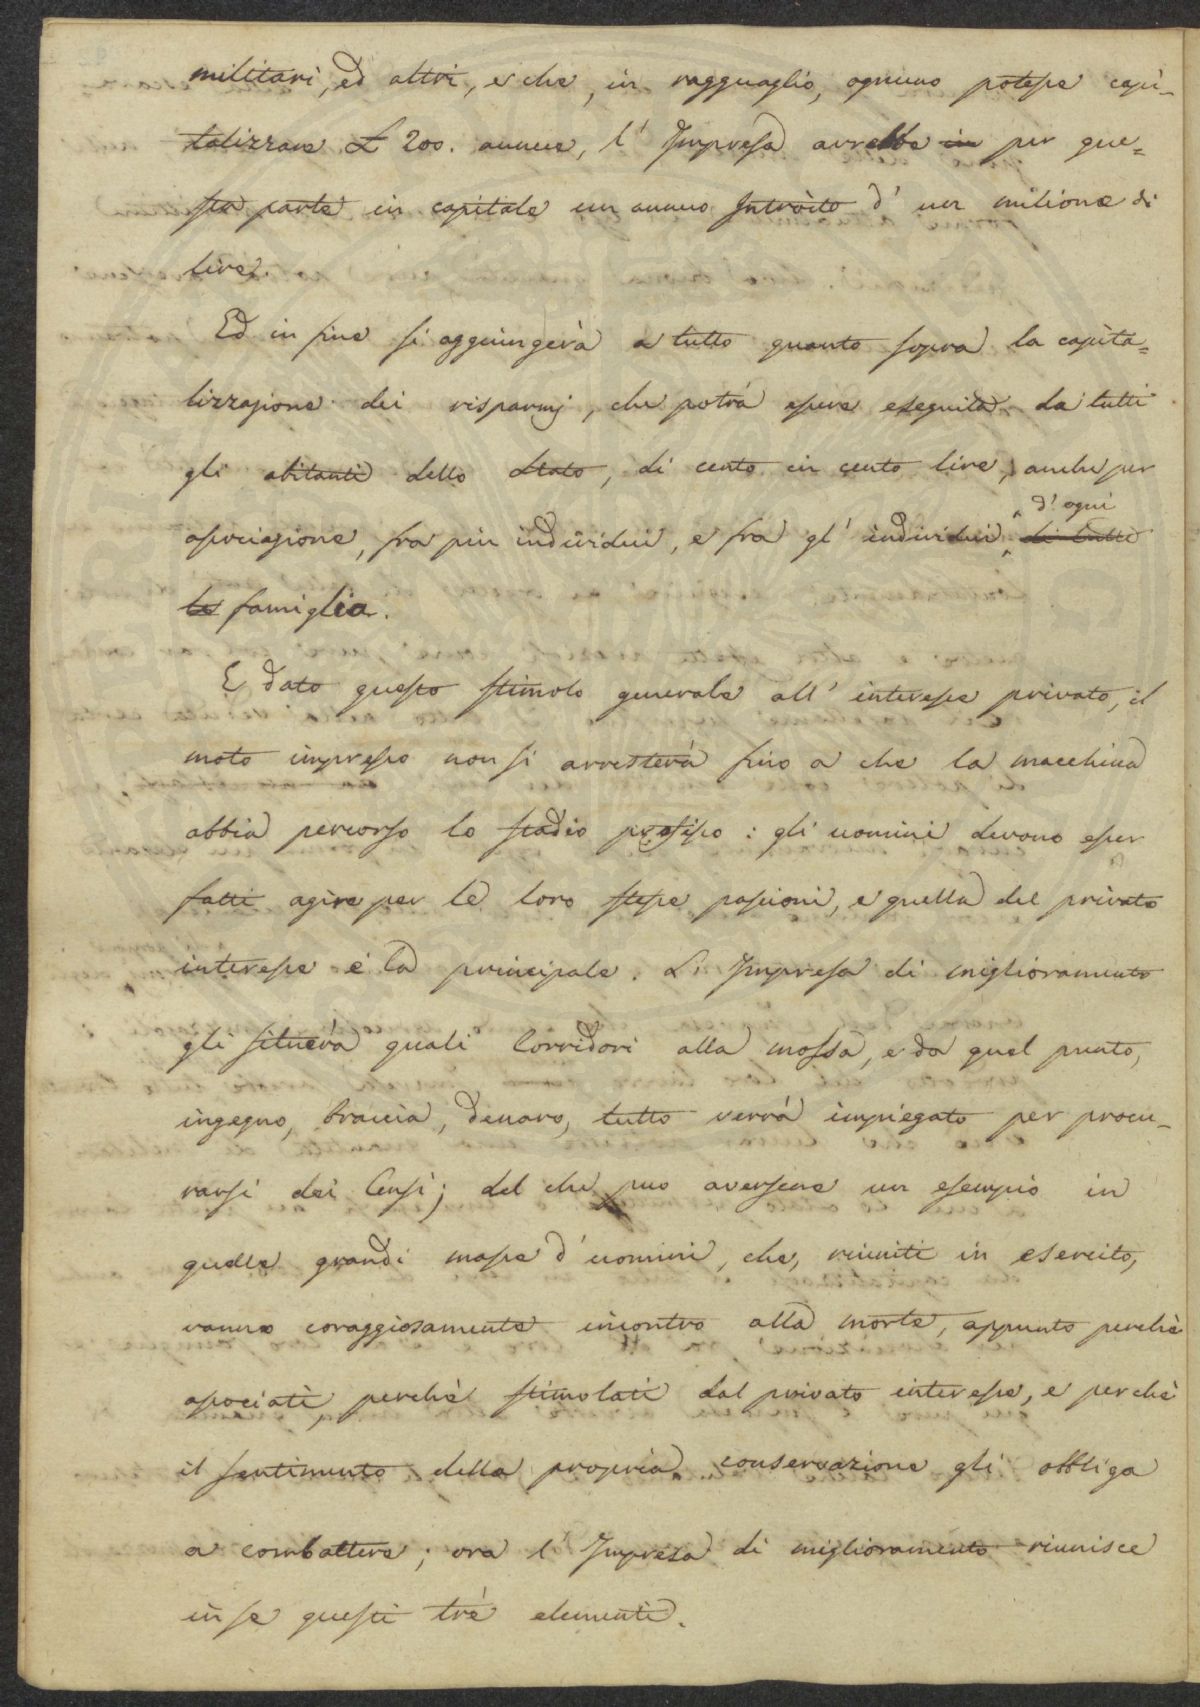 militari, ed altri, e che, in ragguaglio, ognuno potesse capi-
talizzare £ 200. annue, l' Impresa avrebbe in per que=
sta parte in capitale un annuo Introito d' un milione di
lire.
Ed in fine si aggiungerà a tutto quanto sopra la capita=
lizzazione dei risparmj, che potrà essere eseguita da tutti
gli abitanti dello Stato, di cento in cento lire, anche per
associazione, fra più individui, e fra gl' individui di tutte
d' ogni
le famiglia.
E dato questo stimolo generale all' interesse privato, il
moto impresso non si arresterà fino a che la macchina
abbia percorso lo stadio prefisso: gli uomini devono esser
fatti agire per le loro stesse passioni, e quella del privato
interesse è la principale. L' Impresa di miglioramento
gli situerà quali Corridori alla mossa, e da quel punto,
ingegno, braccia, denaro, tutto verrà impiegato per procu-
rarsi dei Censi; del che può aversene un esempio in
quelle grandi masse d' uomini, che, riuniti in esercito,
vanno coraggiosamente incontro alla morte, appunto perchè
associati, perchè stimolati dal privato interesse, e perchè
il sentimento della propria conservazione gli obbliga
a combattere; ora l' Impresa di miglioramento riunisce
in se questi trè elementi.